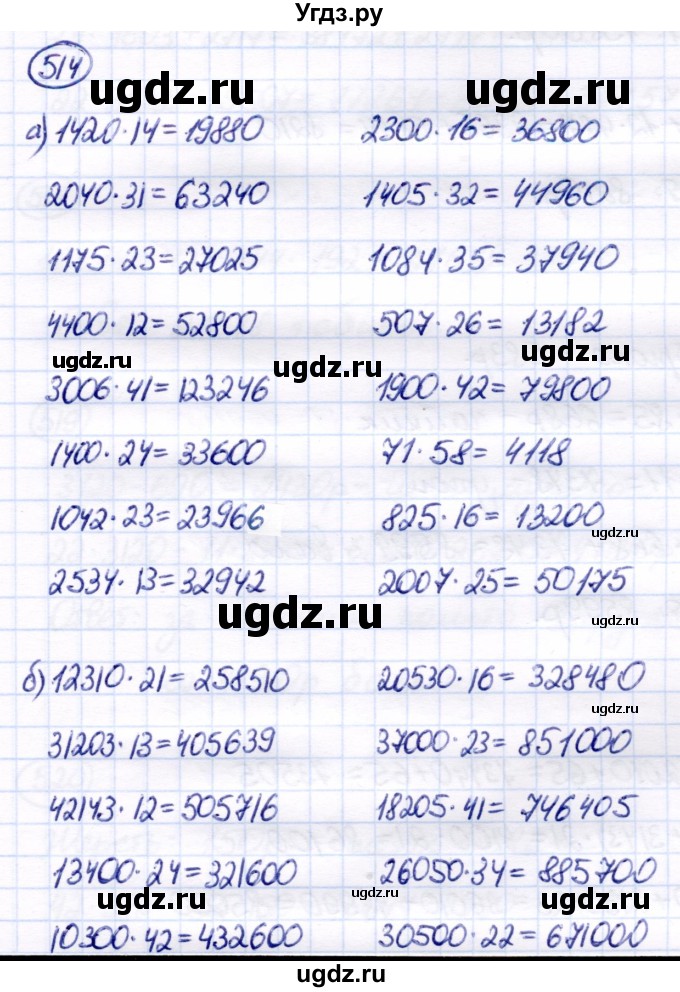 Угдз.ру
514
ugdz.ru ugdz.ru
а) 1420·14=19880 2300·16=36800
2040·31=63240 1405·32=44960
1175·23=27025 1084·35=37940
4400·12=52800 507·26=13182
ugdz.ru ugdz.ru ugdz.ru
3006·41=123246 1900·42=79800
1400·24=33600 71·58=4118
1042·23=23966 825·16=13200
ugdz.ru
2534·13=32942 2007·25=50175
ugdz.ru ugdz.ru
б) 12310·21=258510 20530·16=328480
ugdz.ru
31203·13=405639 37000·23=851000
42143·12=505716 18205·41=746405
13400·24=321600 26050·34=885700
ugdz.ru ugdz.ru ugdz.ru
10300·42=432600 30500·22=671000
ugdz.ru